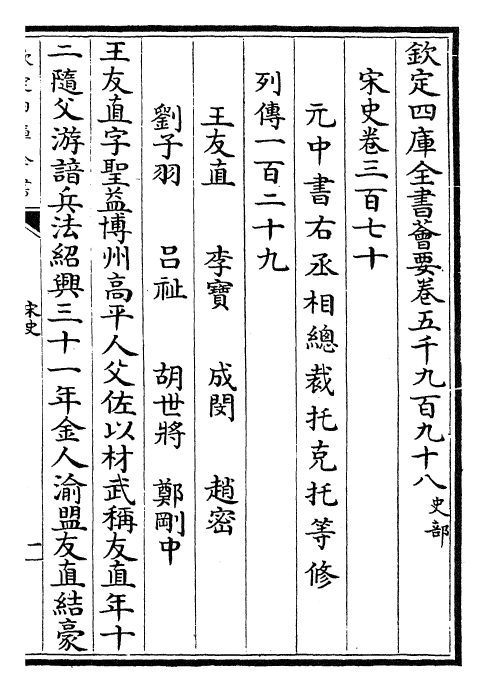 欽定四庫全書薈要卷五千九百九十八 史部
宋史卷三百七十
元中書右丞相總裁托克托等修
列傳一百二十九
王友直 李寶 成閔 趙密
劉子羽 呂祉 胡世將 鄭剛中
王友直字聖益博州高平人父佐以材武稱友直年十
二隨父游諳兵法紹興三十一年金人渝盟友直結豪
宋史